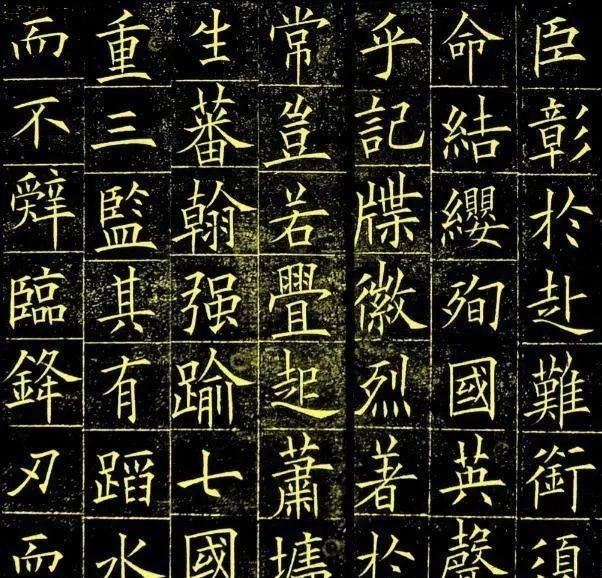 臣彰於赴難銜須
命結纓殉國英聲
乎記牒徽烈著於
常豈若舋起蕭墉
生蕃翰强踰七國
重三監其有蹈水
而不辭臨鋒刃而